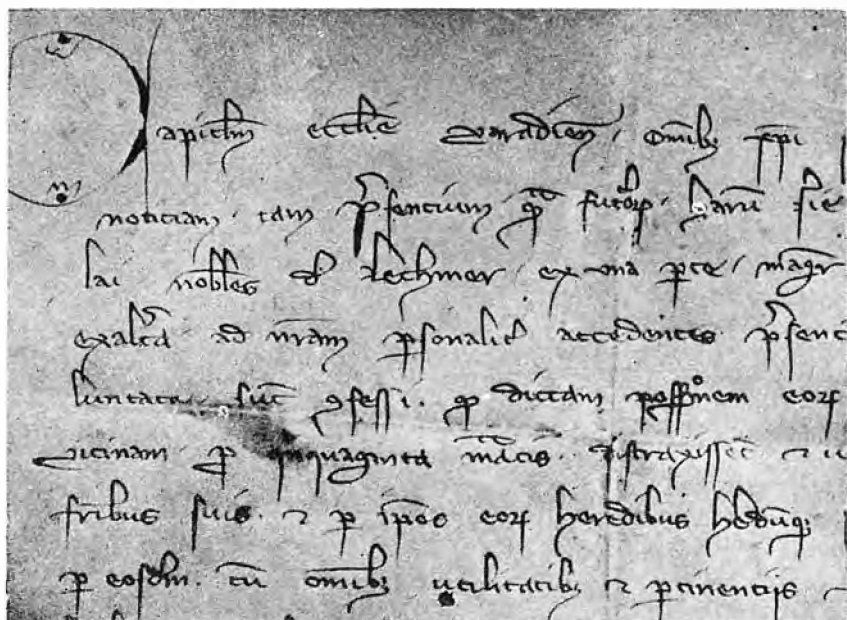 apitlm ecclie Waradien. Omib; xpi
noticiam. tam p̄sencium q̄m futoꝝ. haꝝ sie
lai nobles de Lechmer. ex una ꝑte. magr
exaltā ad nr̄am ꝑsonalit̄ accedentes. p̄senc
luntate. sūt ꝯfessi. ꝙ dictam possōnem eoꝝ
uicinam. ꝓ quīquaginta mārcis. distraxissēt ⁊ u
fr̄ibus suis. ⁊ ꝑ ip̄os eoꝝ heredibus hēdūq;
ꝑ eosdm̄. cū om̄ib; utilitatib; ⁊ ꝑtinentijs